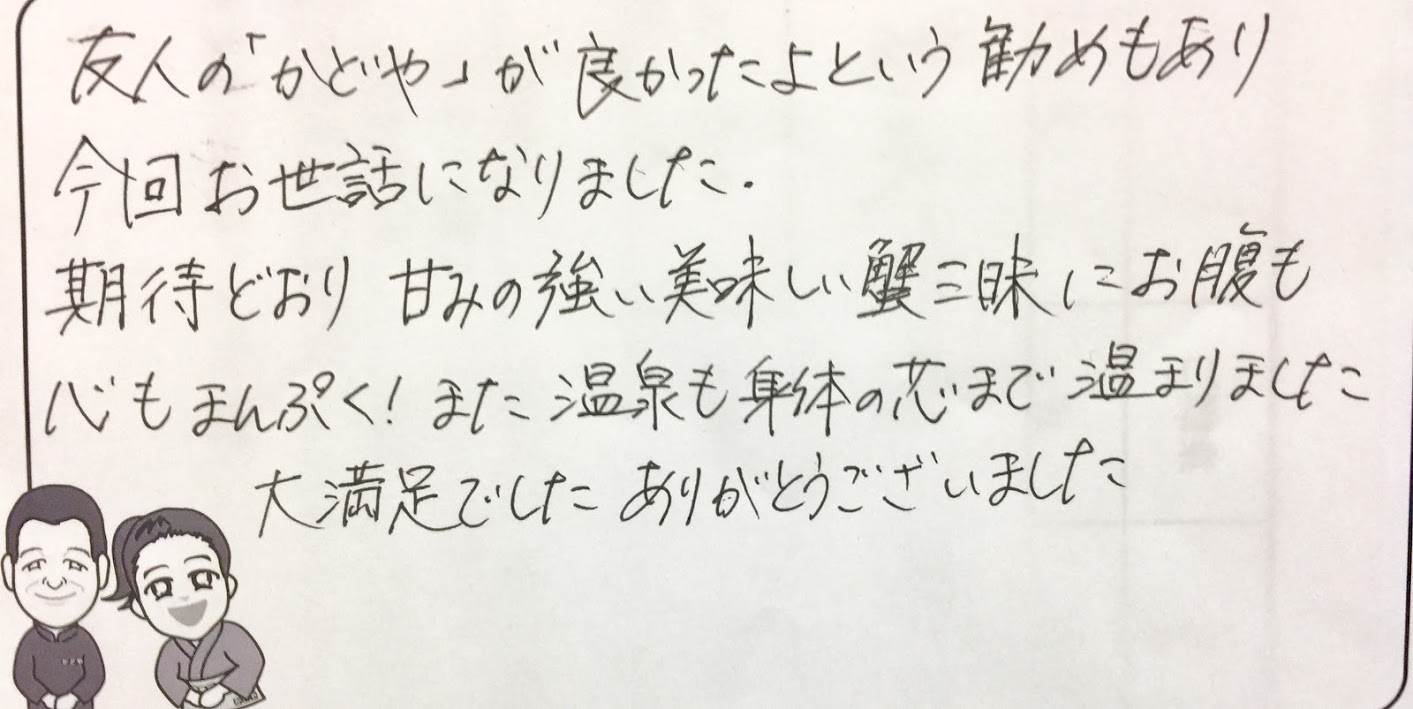 友人の「かどや」が良かったよという勧めもあり
今回お世話になりました.
期待どおり 甘みの強い美味しい蟹三昧にお腹も
心もまんぷく! また温泉も身体の芯まで温まりました
大満足でした ありがとうございました